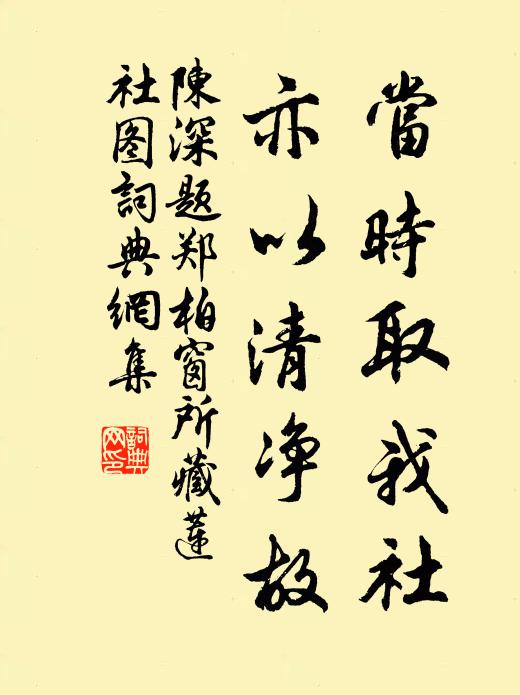 當時取我社
亦以清净故
陳深题郑柏窗所藏蓮
社图詞典網集
詞典网印